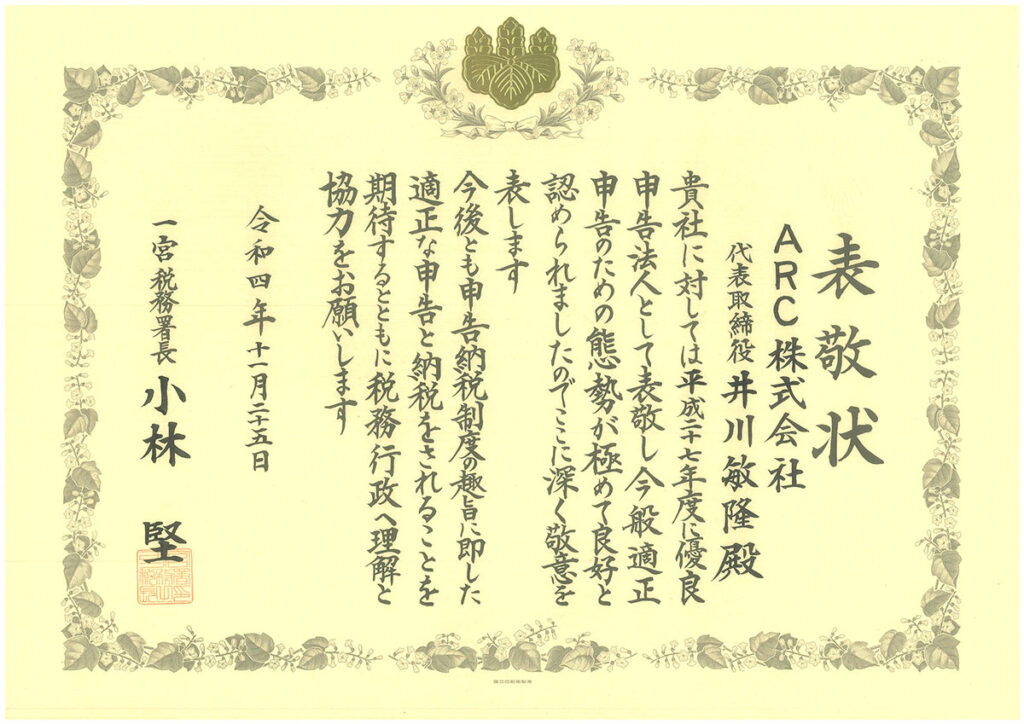 表敬状
ARC株式会社
代表取締役 井川敏隆殿
貴社に対しては平成二十七年度に優良
申告法人として表敬し今般適正
申告のための態勢が極めて良好と
認められましたのでここに深く敬意を
表します
今後とも申告納税制度の趣旨に即した
適正な申告と納税をされることを
期待するとともに税務行政へ理解と
協力をお願いします
令和四年十一月二十五日
一宮税務署長 小林 堅